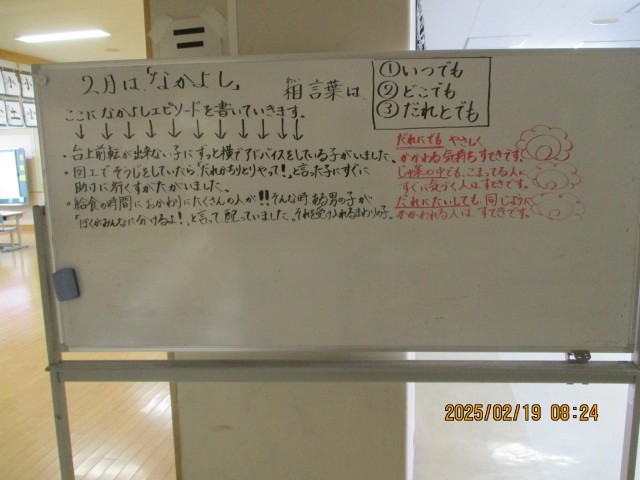 2月は「なかよし」
相言葉は
あい
①いつでも
②どこでも
③だれとでも
ここになかよしエピソードを書いていきます。
↓ ↓ ↓ ↓ ↓ ↓ ↓ ↓ ↓ ↓
・台上前転が出来ない子にずっと横でアドバイスをしている子がいました。
・図工でそうじをしていたら「だれかちりとりやって!」と言った子にすぐに
助けに行くすがたがいました。
・給食の時間におかわりにたくさんの人が!!そんな時ある男の子が
「ぼくがみんなに分けるよ!」と言って配っていました。それを受け入れるまわりの子。
だれにでも やさしく
かかわる気持ちすてきです。
じゅ業の中でも、こまってる人に
すぐに気づく人はすてきです。
だれにたいしても、同じように
かかわれる人は、すてきです。
2025/02/19 08:24